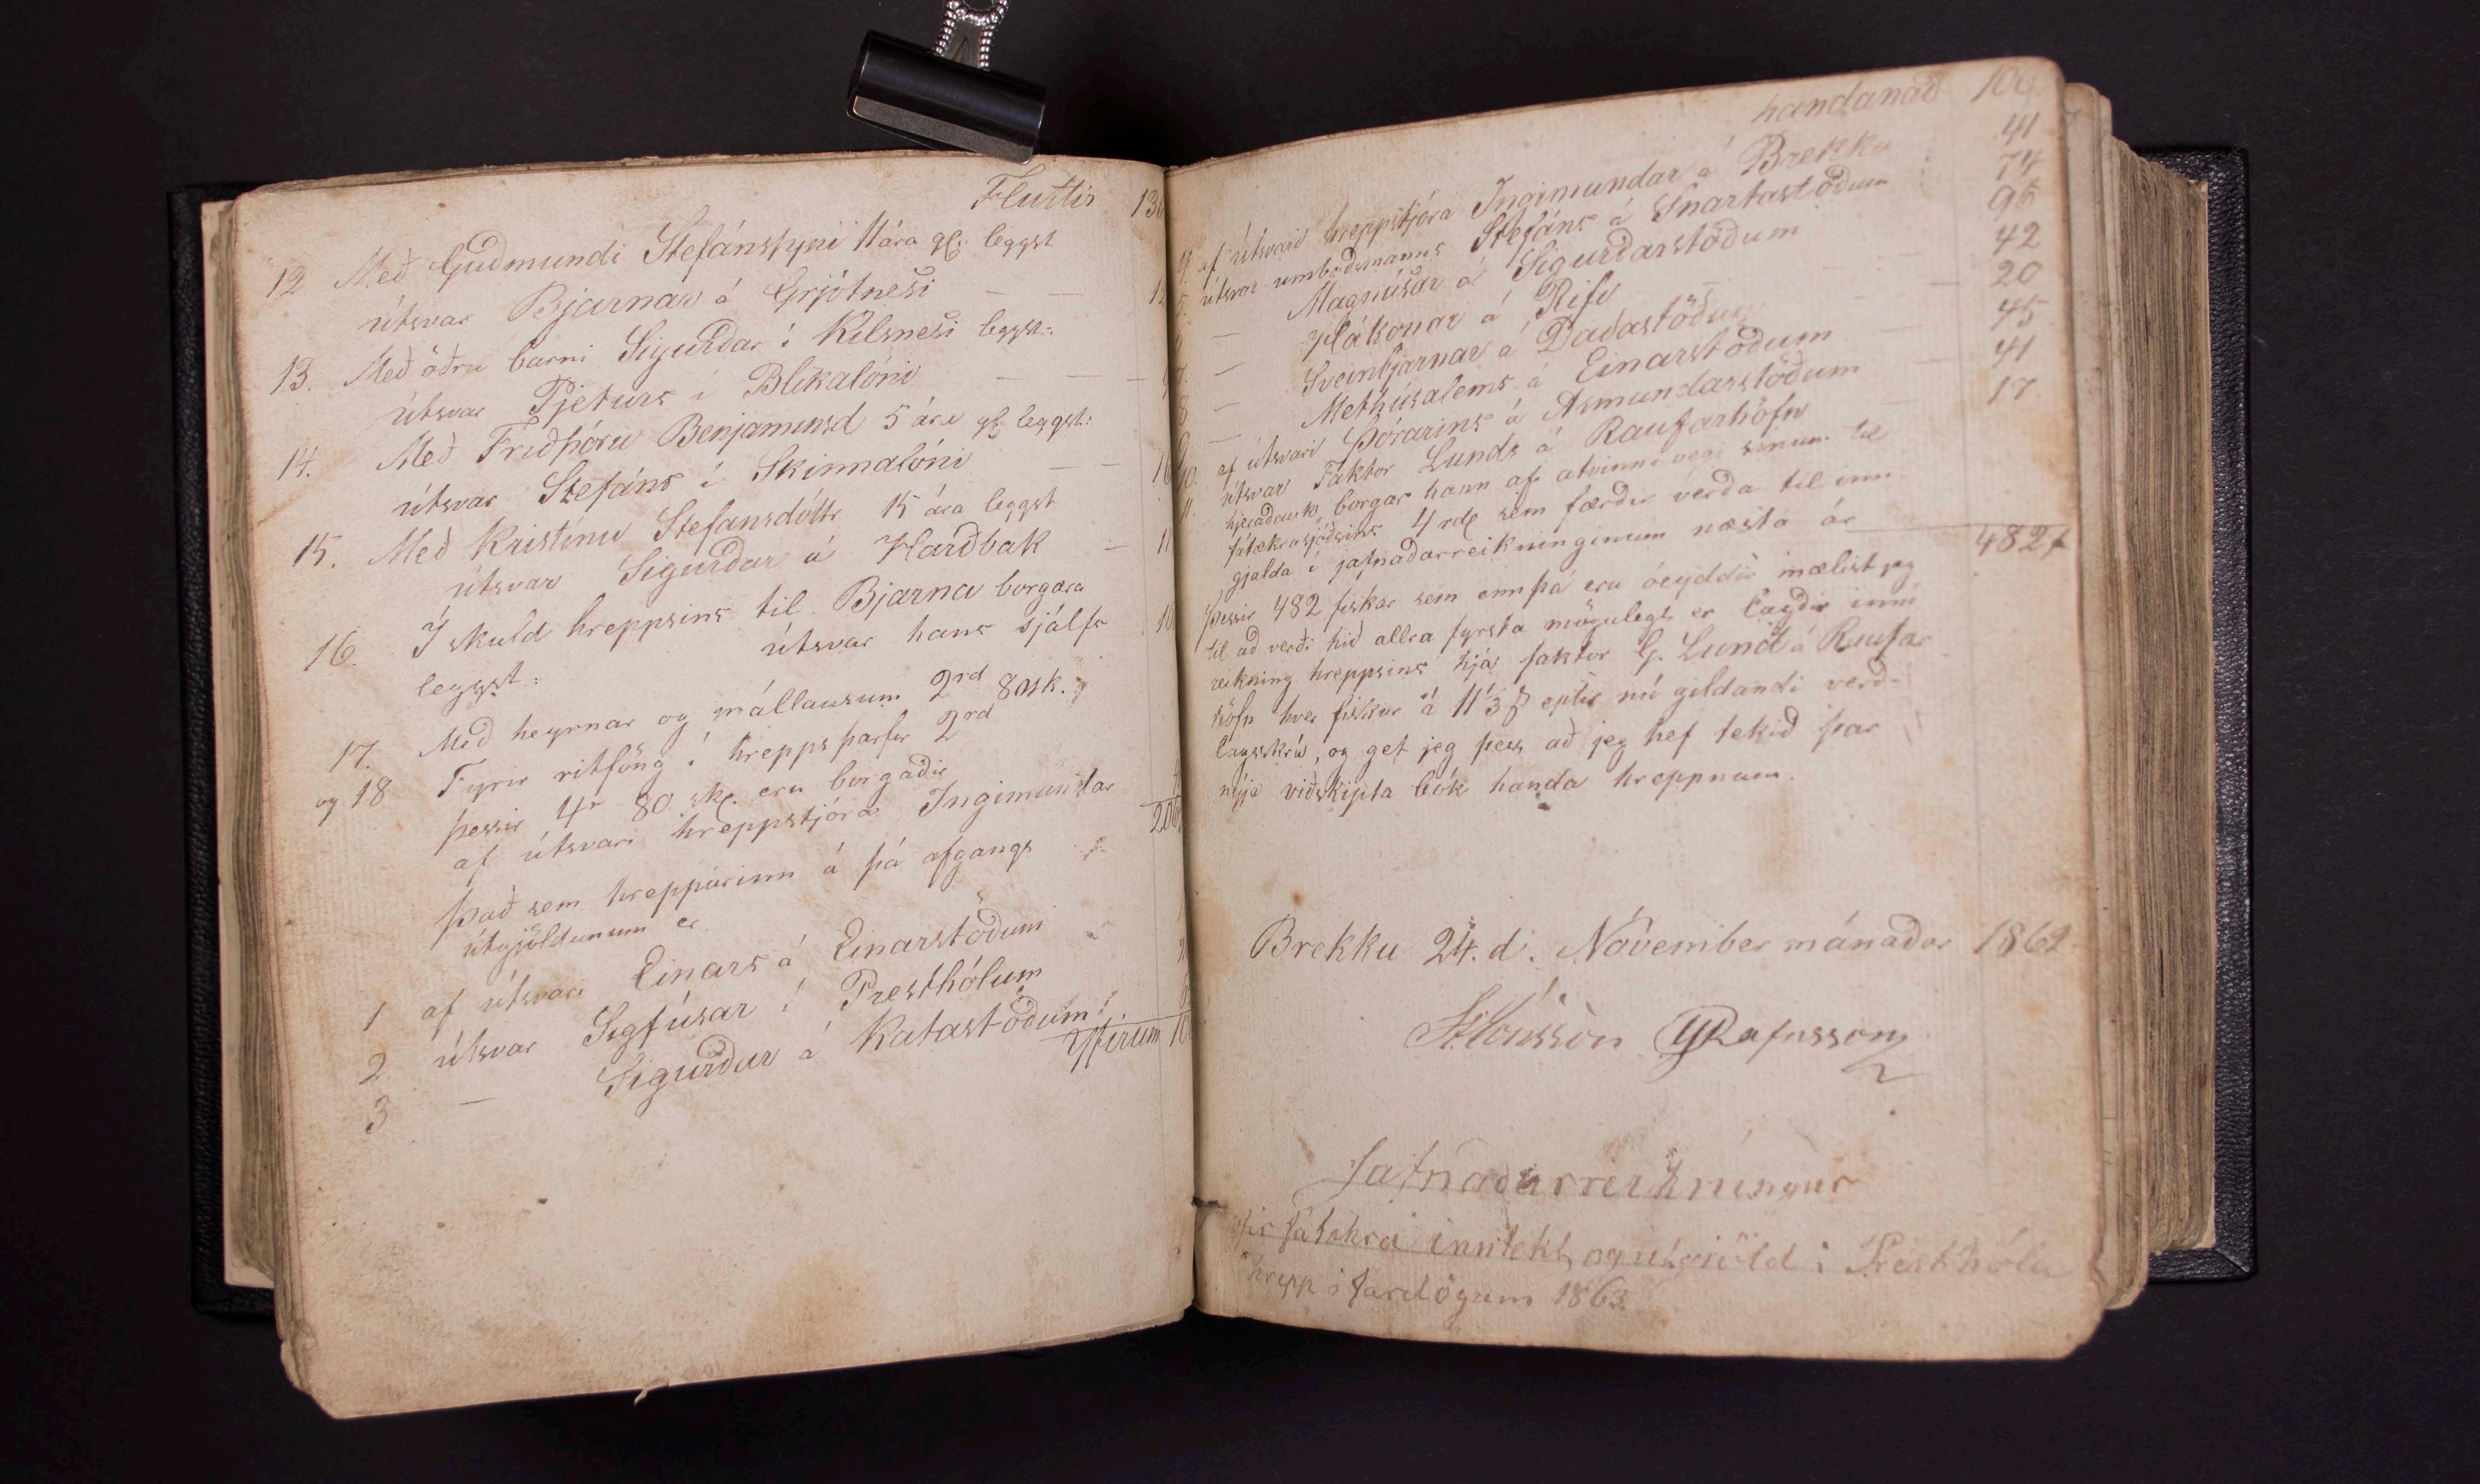 Fluttir 13
12 Með Guðmundi Stefánssyni 11 ára gl: leggst
útsvar Bjarnar á Grjótnesi — — 1
13. Með öðru barni Sigurðar í Kilsnesi leggst:
útsvar Pjeturs í Blikalóni — — —
14. Með Friðþóru Benjamínsd 5 ára gl leggst:
útsvar Stefáns í Skinnalóni — —
15. Með Kristínu Stefánsdóttr 15 ára leggst
útsvar Sigurðar á Harðbak —
16. Í skuld hreppsins til Bjarna borgara
leggst: útsvar hans sjálfs
17. Með heyrnar og mállausum 2rd 80sk.
og 18 Fyrir ritföng í hreppsþarfir 2rd
þessir 4r 80 sk. eru borgaðir
af útsvari hreppstjóra Ingimundar
það sem hreppurinn á þá afgangs
útgjöldunum er
1 af útsvari Einars á Einarstöðum
2 útsvar Sigfúsar í Presthólum
3 — Sigurðar á Katastöðum
Yfirum 10
handanað 106
4. af útsvari hreppstjóra Ingimundar á Brekku 41
5. útsvar umboðsmanns Stefáns á Snartastöðum 74
— Magnúsar á Sigurðarstöðum 95
7. — Hákonar á Rifi 42
8 — Sveinbjarnar á Daðastöðum 20
9. — Methúsalems á Einarstöðum 45
10. af útsvari Þórarins á Asmundarstöðum 41
11. útsvar Faktor Lunds á Raufarhöfn 17
borgar hann af atvinnuvegi sínum til
fátækrasjóðsins 4 rd sem færðir verða til inn
gjalda í jafnaðarreikninginum næsta ár 482
Þessir 482 fiskar sem ennþá eru óeyddir mælist jeg
til að verði hið allra fyrsta mögulegt er lagðir inní
reikning hreppsins hjá faktor G. Lund á Raufar
höfn hver fiskur á 11 1/3 β eptir nú gildandi verð-
lagsskrá, og get jeg þess að jeg hef tekið þar
nýja viðskipta bók handa hreppnum.
Brekku 24. d. Nóvember mánaðar 1862
St Jónsson Rafnsson
Jafnaðarreikníngur
yfir fátækra inntekt og útgjöld í Presthóla
hrepp í fardögum 1863.